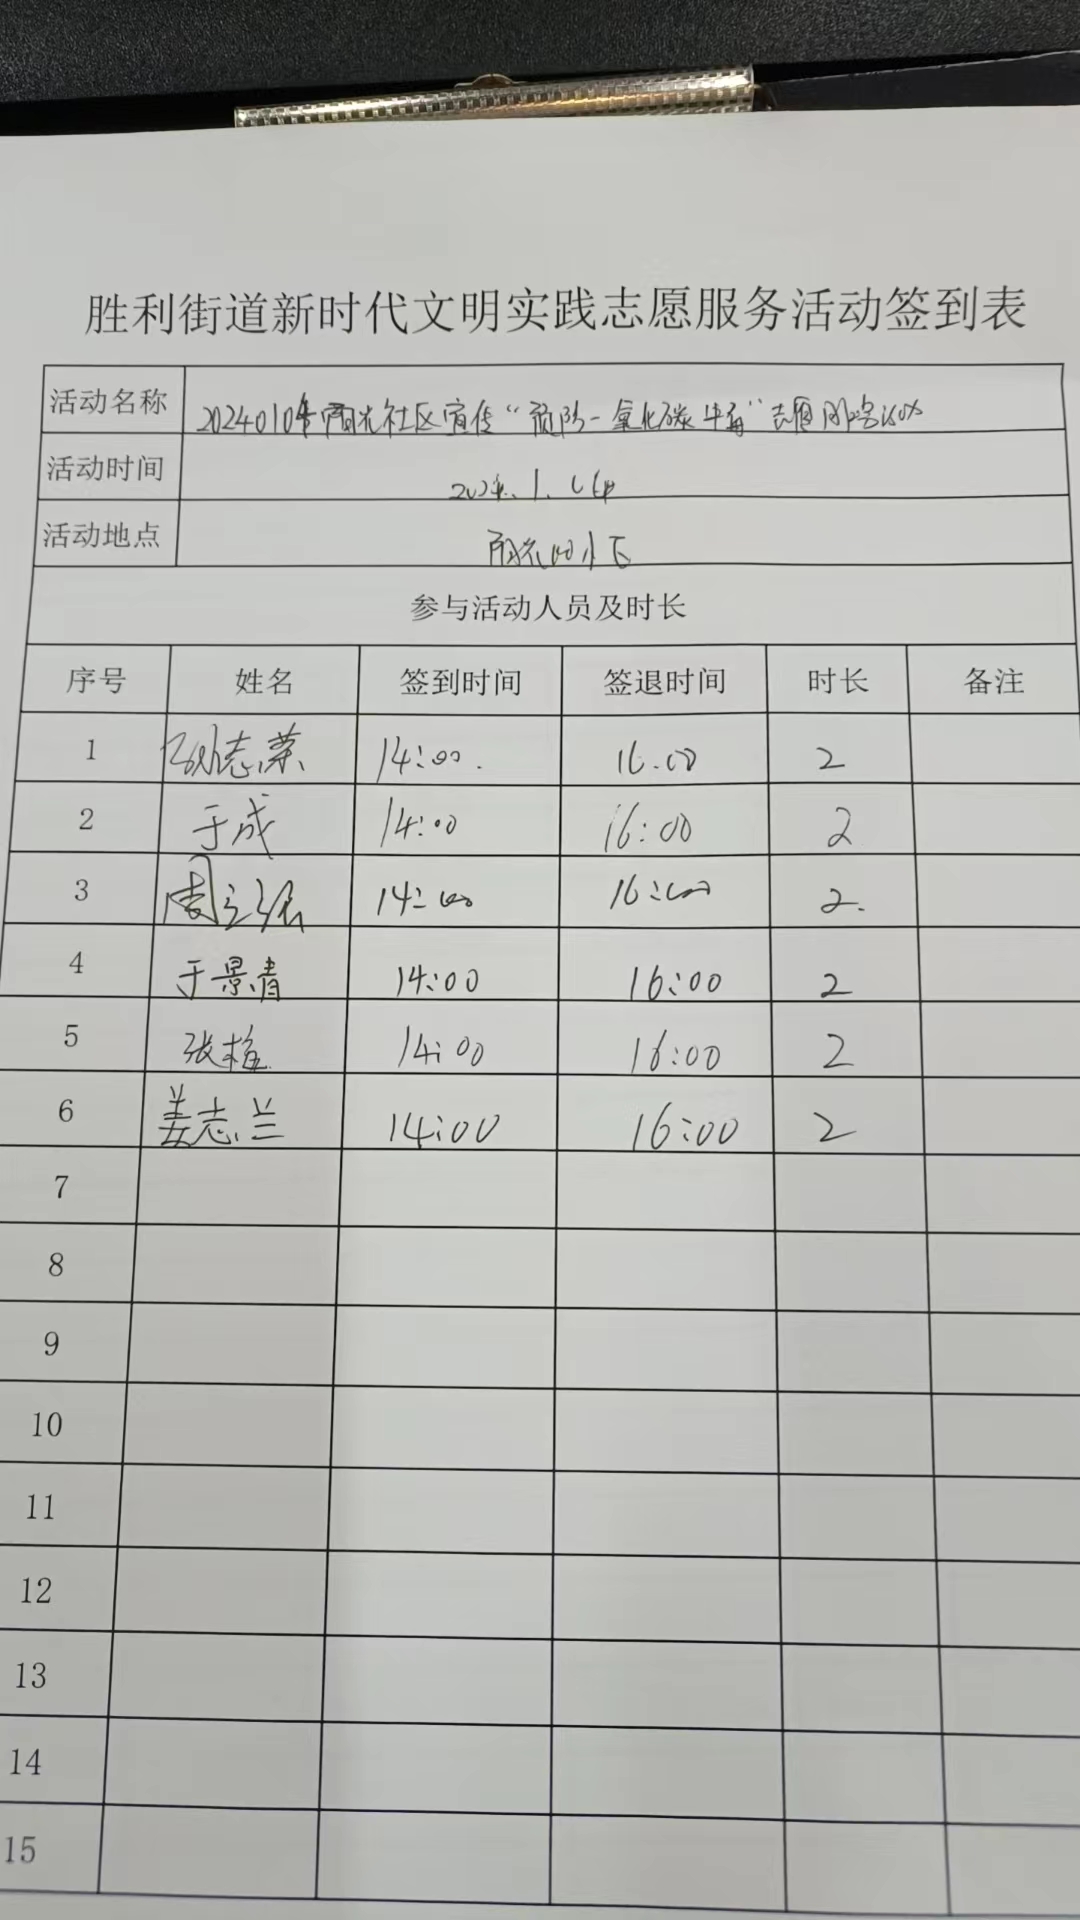 胜利街道新时代文明实践志愿服务活动签到表
活动名称 阳光社区宣传“预防一氧化碳中毒”志愿服务活动
活动时间
活动地点
参与活动人员及时长
序号 姓名 签到时间 签退时间 时长 备注
1 孙志荣 14:00. 16.00 2
2 于成 14:00 16:00 2
3 周 14:00 16:00 2.
4 于景青 14:00 16:00 2
5 张 14:00 16:00 2
6 姜志兰 14:00 16:00 2
7
8
9
10
11
12
13
14
15